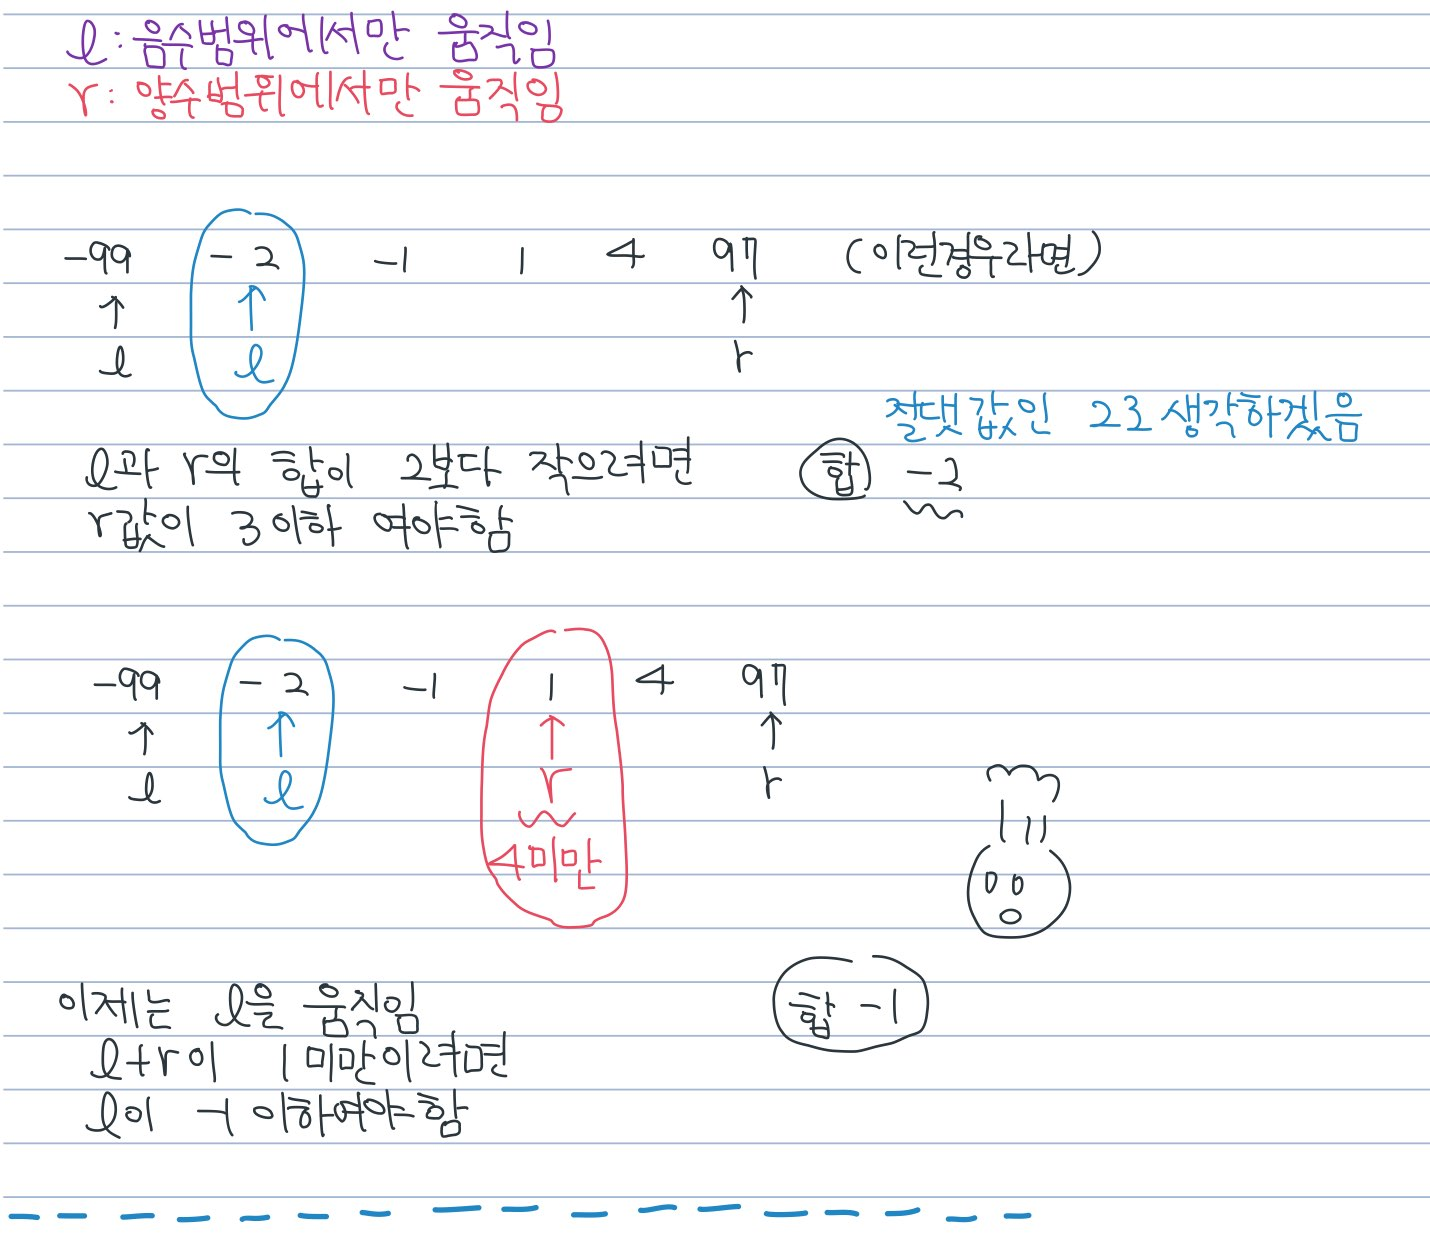 l : 음수범위에서만 움직임
r : 양수범위에서만 움직임
-99 -2 -1 1 4 97 (이런경우라면)
↑ ↑ ↑
l l r
절댓값인 2로 생각하겠음
l과 r의 합이 2보다 작으려면 합 -2
r값이 3이하 여야함
-99 -2 -1 1 4 97
↑ ↑ ↑ ↑
l l r r
4미만
이제는 l을 움직임 합 -1
l+r이 1미만이려면
l이 -1 이하여야함